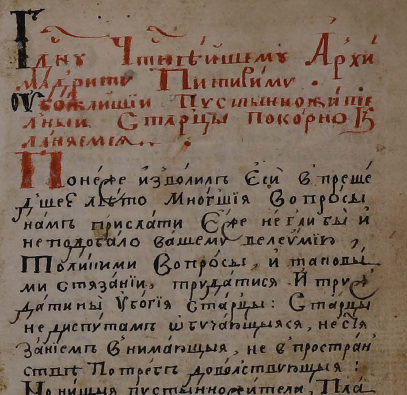 Гд҃ну Чтнѣйшему Архи
мадриту Питириму .
Убожайшіи Пустынножите
лныи Старцы покорно К
ланяемся
Понеже изволилъ Еси в преше
дшее лѣто Многшія Вопросы
намъ прислати Еже не бы и
не подобало вашему велеумію
Толикими Вопросы, и таковы
ми стязании, трудатися И тру
датины Убогія Старцы: Старцы
не диспутамъ ѡбучающыяся, не
Внимающыя, не в простран
ствѣ Потребъ доволствующыя :
пустынножители, Пла